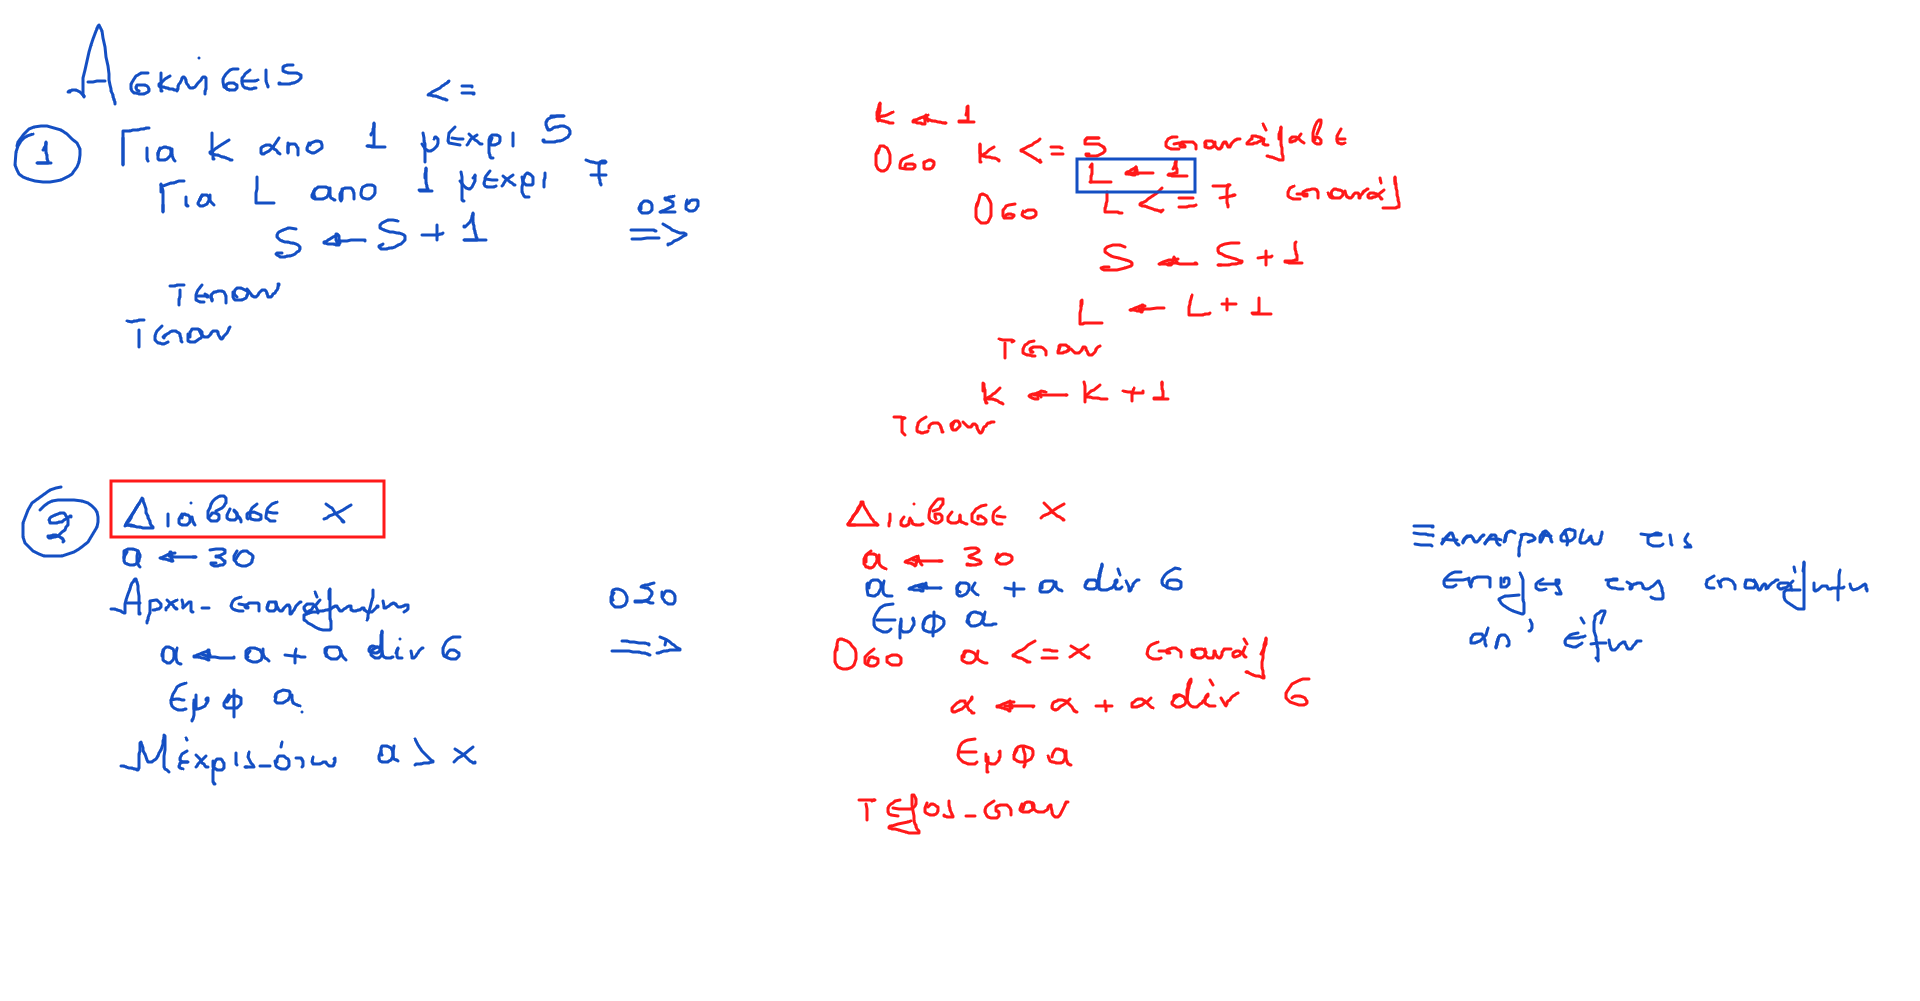 Ασκήσεις
<=
① Για κ απο 1 μεχρι 5
Για L απο 1 μεχρι 7
S ← S + 1
Τεπαν
Τεπαν
ΟΣΟ
=>
κ ← 1
Οσο κ <= 5 επανάλαβε
L ← 1
Οσο L <= 7 επανάλ
S ← S + 1
L ← L + 1
Τεπαν
κ ← κ + 1
Τεπαν
② Διάβασε χ
α ← 30
Αρχη_επανάληψης
α ← α + α div 6
Εμφ α
Μέχρις_ότου α > χ
ΟΣΟ
=>
Διάβασε χ
α ← 30
α ← α + α div 6
Εμφ α
Οσο α <= χ επανάλ
α ← α + α div 6
Εμφ α
Τελος_επαν
Ξαναγραφω τις
εντολες της επανάληψη
απ' έξω